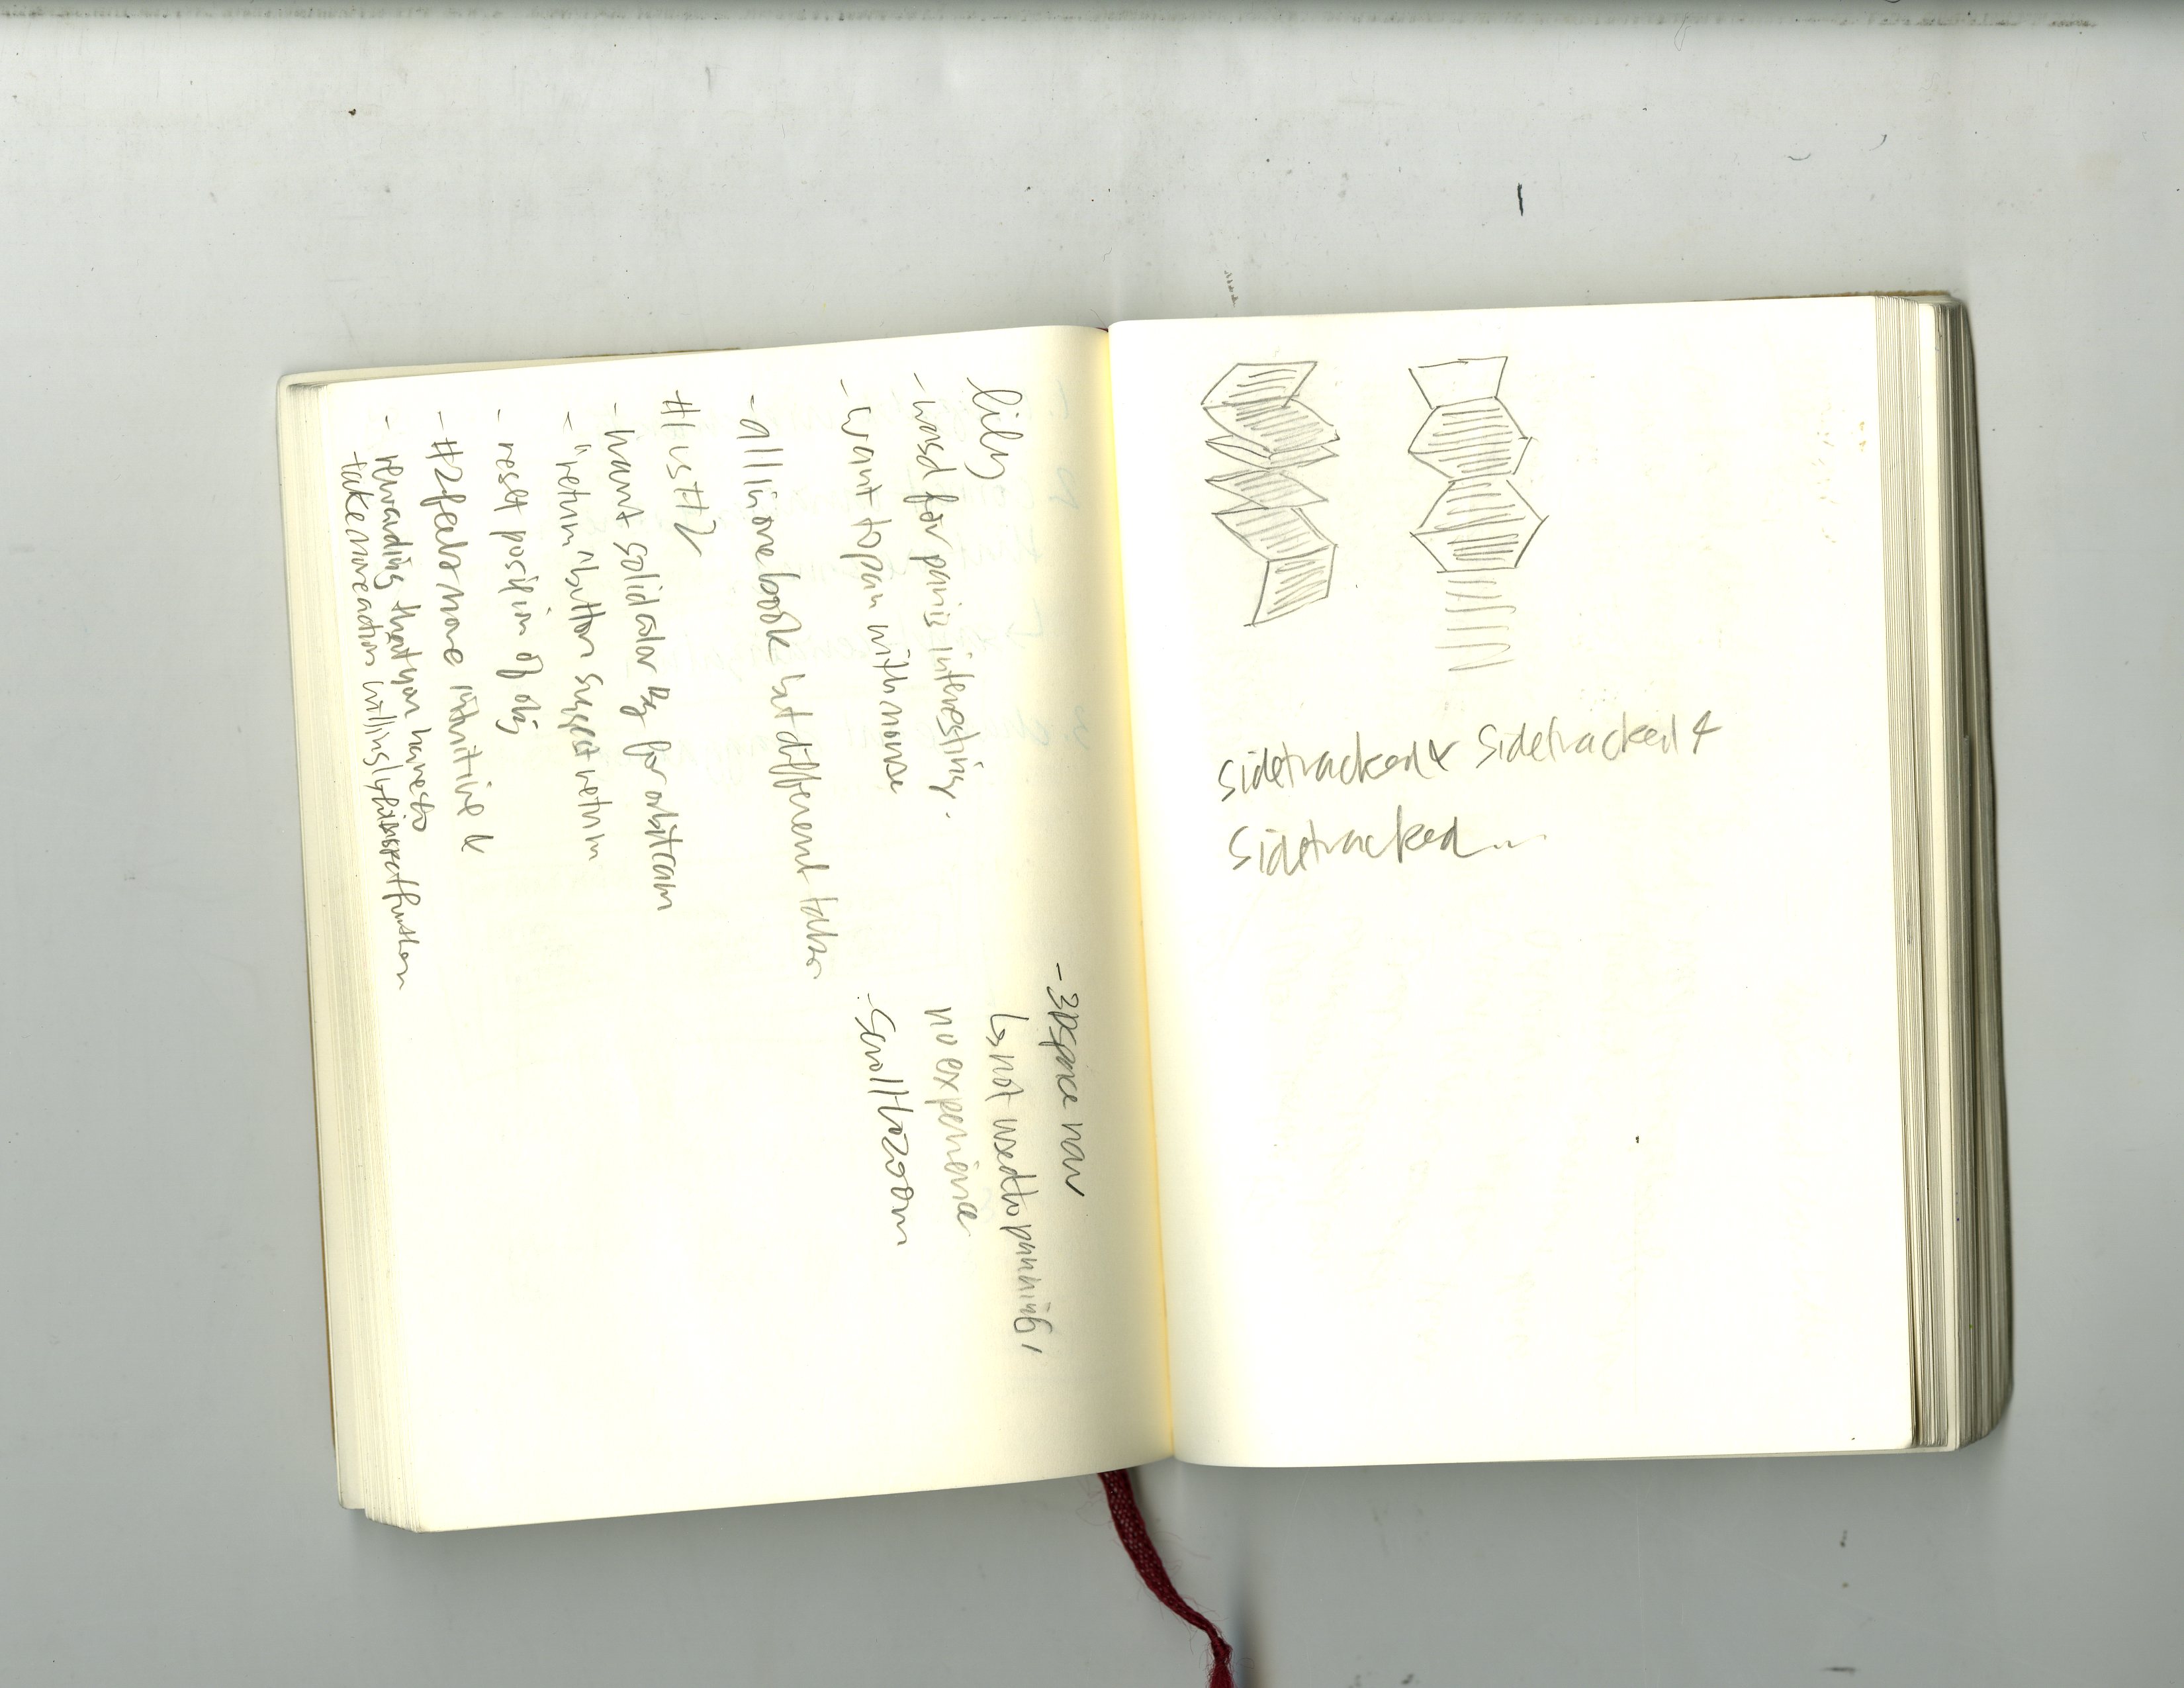 lily
- wasd for pan is interesting.
- want to pan with mouse
- all in one book but different tabs
#1 vs #2
- want solid color bg for orbitcam
- "return" button suggest return
- reset position of obj
- #2 feels more intuitive &
- rewarding that you have to
take more action willingly to inspect further
- 3D space nav
↳ not used to panning /
no experience
- scroll to zoom
sidetracked & sidetracked &
sidetracked...